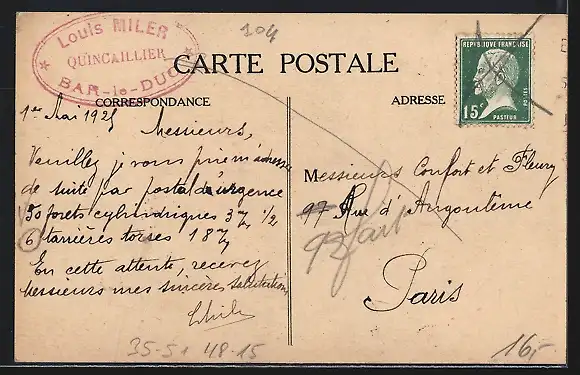 Louis MILER
QUINCAILLIER
BAR-le-DUC
104
CARTE POSTALE
REPUBLIQUE FRANÇAISE
15c
POSTES
PASTEUR
CORRESPONDANCE
ADRESSE
1er Mai 1925
Messieurs,
Veuillez je vous prie m'adresser
de suite par postal d'urgence
50 forets cylindriques 3 7/ 1/2
6 tarières torses 18 7/
En cette attente, recevez
Messieurs mes sincères salutations
Messieurs Confort et Fleury
97 Rue d'Angoulême
Paris
35-51 48-15
16,-